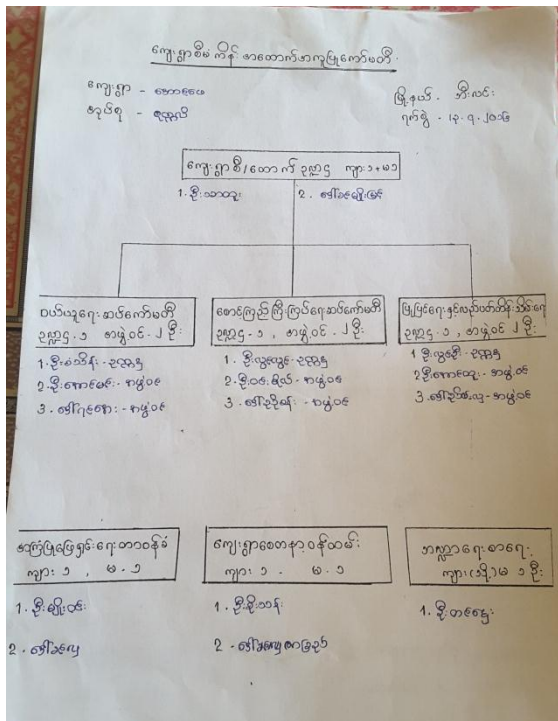 ကျေးရွာစီမံကိန်း အထောက်အကူပြုကော်မတီ
ကျေးရွာ -
အုပ်စု -
မြို့နယ် - ဘီးလင်း
ရက်စွဲ - ၊၃.၇.၂၀၁၆
ကျေးရွာစီ/ထောက် ဥက္ကဋ္ဌ ကျား ၁ + မ ၁
1. ဦးသာထူး
2. ဒေါ်
ဝယ်ယူရေးဆပ်ကော်မတီ
ဥက္ကဋ္ဌ - ၁ အဖွဲ့ဝင် - ၂ ဦး
1. ဦးစံသိန်း - ဥက္ကဋ္ဌ
2. ဦးအောင်မင်း - အဖွဲ့ဝင်
3. ဒေါ် - အဖွဲ့ဝင်
စောင့်ကြည့်ကြီးကြပ်ရေးဆပ်ကော်မတီ
ဥက္ကဋ္ဌ - ၁ , အဖွဲ့ဝင် - ၂ ဦး
1. ဦးလှထွေး - ဥက္ကဋ္ဌ
2. ဦးဝင်းဗိုလ် - အဖွဲ့ဝင်
3. ဒေါ် - အဖွဲ့ဝင်
ပြုပြင်ရေးနှင့်လည်ပတ်ထိန်းသိမ်းရေး
ဥက္ကဋ္ဌ - ၁ , အဖွဲ့ဝင် ၂ ဦး
1. ဦး - ဥက္ကဋ္ဌ
2. ဦးအောင်ထူး - အဖွဲ့ဝင်
3. ဒေါ် - အဖွဲ့ဝင်
အကြံပြုဖြေရှင်းရေးတာဝန်ခံ
ကျား ၁ , မ - ၁
1. ဦးမျိုးဝင်း
2 - ဒေါ်
ကျေးရွာစေတနာ့ဝန်ထမ်း
ကျား ၁ - မ - ၁
1. ဦးစိုးသန်း
2 - ဒေါ်
ဘဏ္ဍာရေးစာရေး
ကျား (သို့) မ ၁ ဦး
1. ဦး